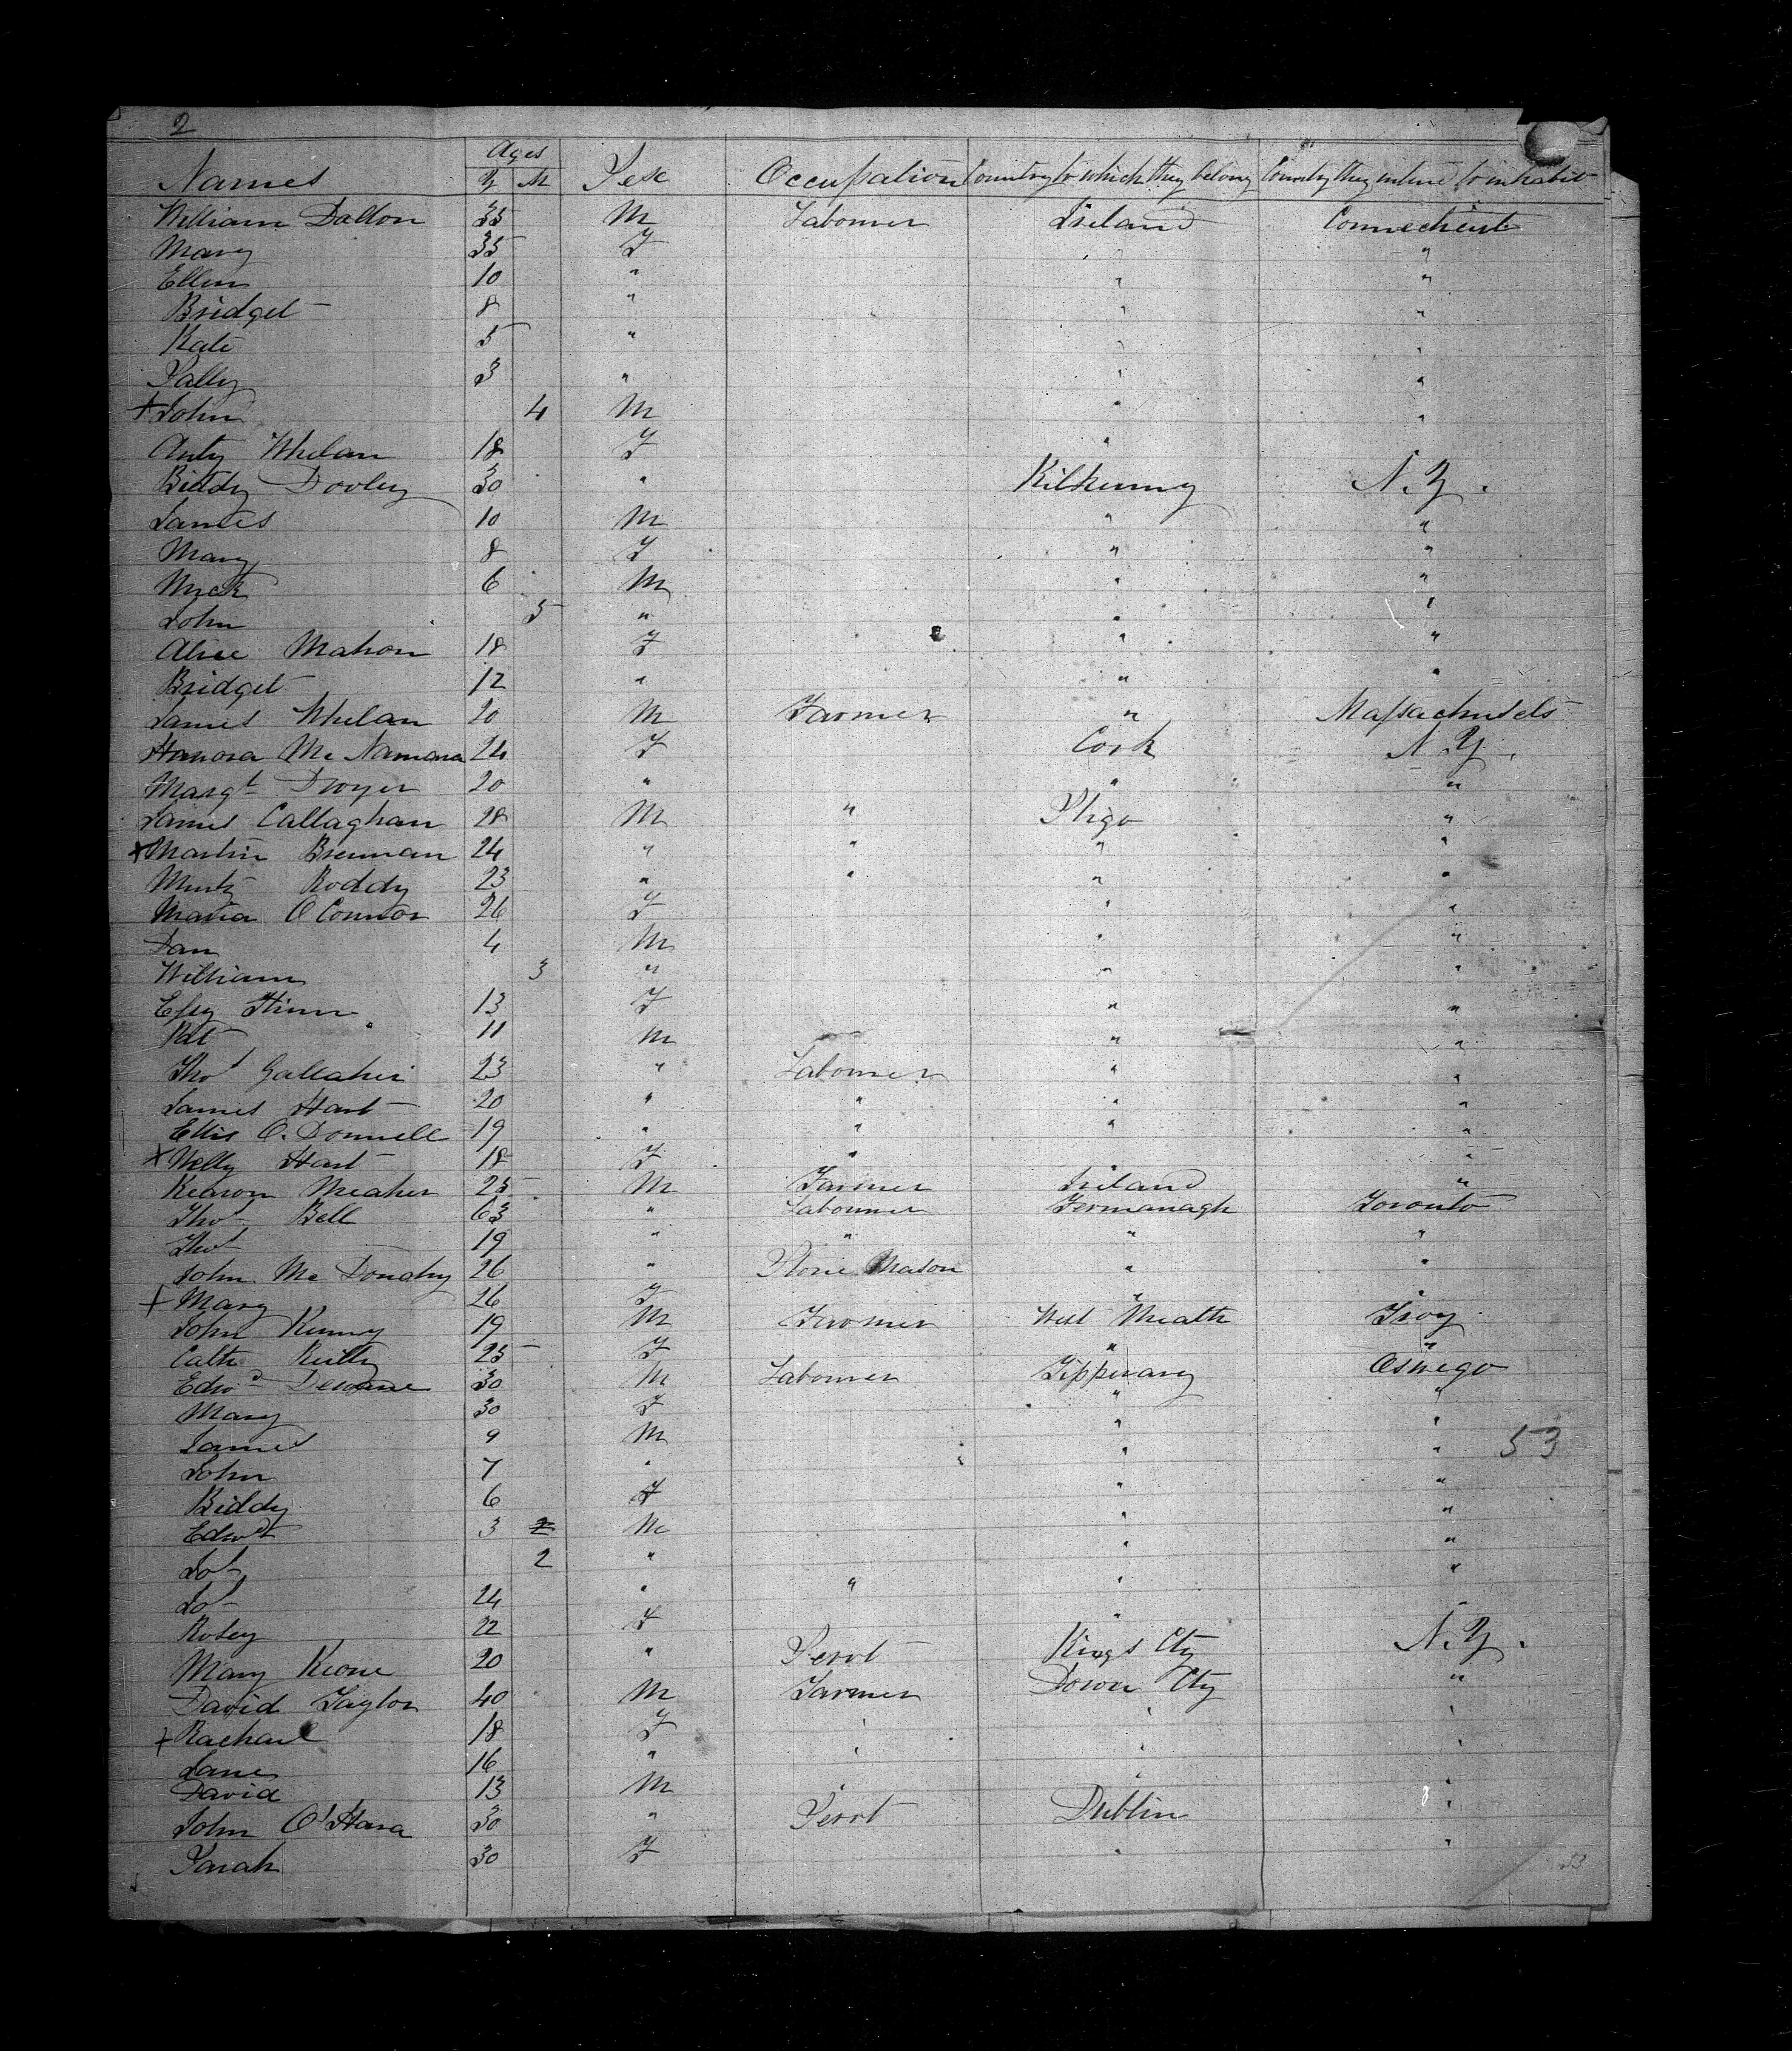 2
Names Ages Y M Sex Occupation Country to which they belong Country they intend to inhabit
William Dalton 35 M Labourer Ireland Connecticut
Mary 35 F " "
Ellen 10 " " "
Bridget 8 " " "
Kate 5 " " "
Sally 3 " " "
+ John 4 M " "
Anty Whelan 18 F "
Biddy Dooley 30 " Kilkenny N.Y.
James 10 M " "
Mary 8 F " "
Mick 6 M " "
John 5 " " "
Alice Mahon 18 F " "
Bridget 12 " " "
James Whelan 20 M Farmer " Massachusets
Hanora McNamara 24 F Cork N.Y.
Margt Dwyer 20 " " "
James Callaghan 28 M " Sligo "
+ Martin Brennan 24 " " " "
Roddy 23 " " " "
Maria O Connor 26 F " "
Dan 4 M " "
William 3 " " "
13 F " "
Pat 11 M " "
Thos Gallaher 23 " Labourer " "
James Hart 20 " " " "
Ellis O. Donnell 19 " " " "
+ Nelly Hart 18 F " "
Kearon Meaher 25 M Farmer Ireland "
Thos Bell 63 " Labourer Fermanagh Toronto
Thos 19 " " " "
John 26 " Stone Mason " "
+ Mary 26 F " "
John Kenny 19 M Farmer West Meath Troy
Cath Reilly 25 F " "
Edwd 30 M Labourer Tipperary Oswego
Mary 30 F " "
James 9 M " "
53
John 7 " " "
Biddy 6 F " "
Edwd 3 2 M " "
2 " " "
24 " " " "
Rosey 22 F "
Mary Keone 20 " Servt Kings Cty N.Y.
David Taylor 40 M Farmer Down Cty "
+ Rachael 18 F " " "
Jane 16 " " " "
David 13 M " "
John O'Hara 30 " Servt Dublin "
Sarah 30 F " "
53